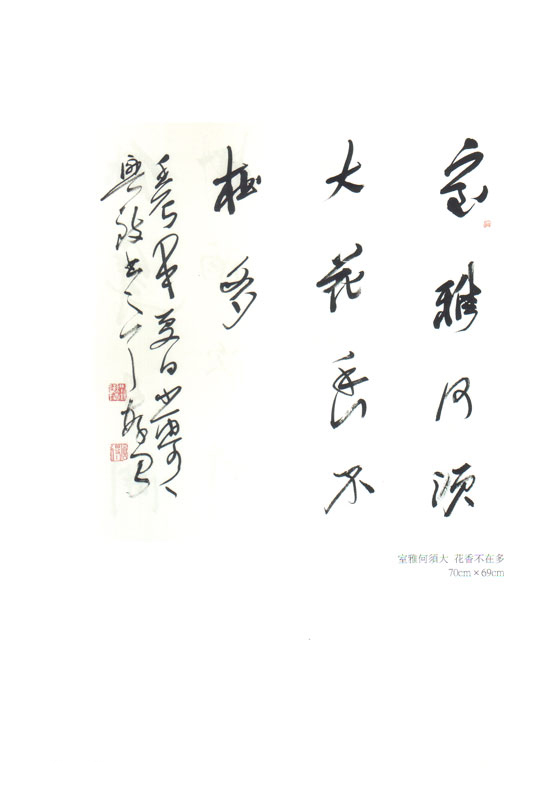 室雅何須
大花香不
在多
夏日
興致書之
室雅何須大 花香不在多
70cm×69cm